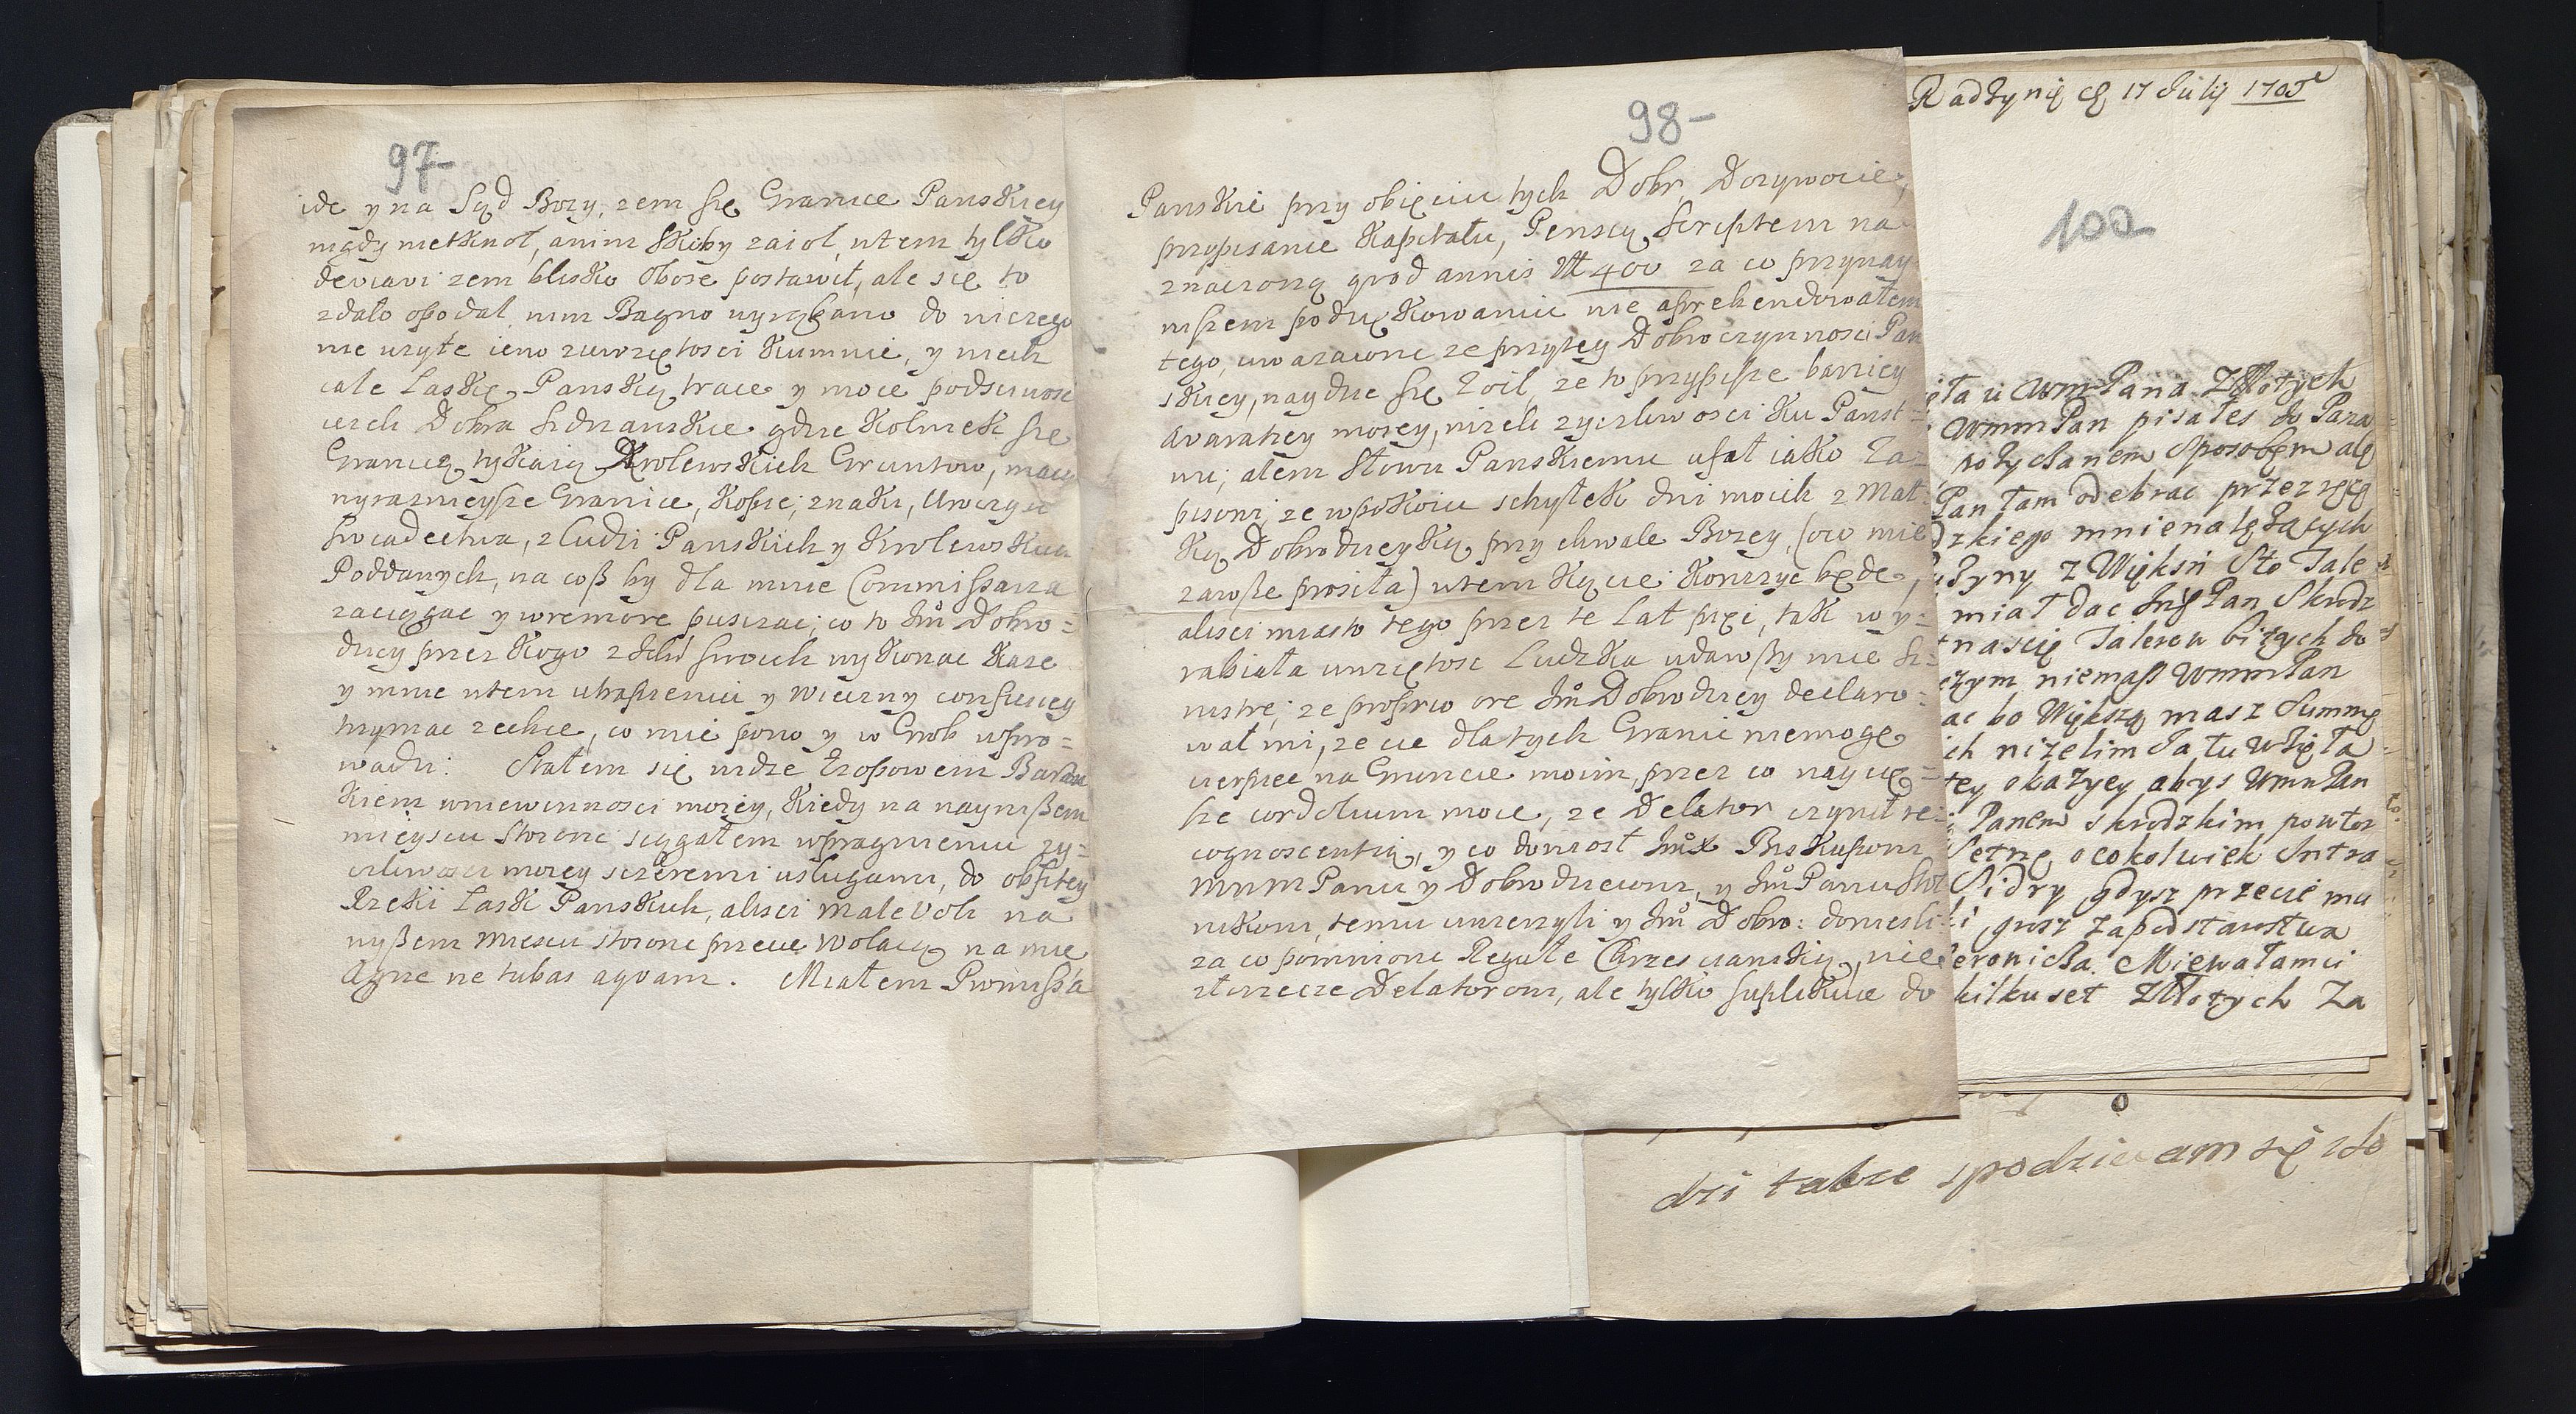 97-
ide y na Sąd Bozy, zem się Granice Panskiey
nigdy nietknoł, anim skiby zaioł, wtem tylko
deviavi zem blisko Oborę postawił, ale się to
zdało opodal, nim Bagno wyrąbano do niczego
nie uzyte ieno zawziętosci kumnie, y niech
cale Laskę Panską tracę y moie podsciwosc
iesli Dobra Sidrzanskie gdzie kolwiek się
Granicą tykaią Krolewskich Gruntow, maią
wyraznieysze Granice, kopce, znaki, Uroczyɛ
swiadectwa, z ludzi Panskich y Krolewskich
Poddanych, na coß by dla mnie Commissarza
zaciągac y w remore puszczac, co to Jm Dobro=
dziey przez kogo z Slug swoich wykonac kaze
y mnie wtem utrapieniu y wieczny confusiey
trzymac zechce, co mie pono y w Grob wpro=
wadzi: Stałem się widzę Ezopowem Baran
kiem w niewinnosci moiey, kiedy na nayniszem
mieyscu stoiąc sięgałem w pragnieniu zy=
czliwosci moiey szczeremi usługami, do obfitey
Rzeki Łask Panskich, alisci malevoli na
wyßem miescu stoiąc przecie wołaią na mie
Agne ne tubas aqvam. Miałem Promissa
98-
Panskie przy obięciu tych Dobr, Dozywocie,
przypisanie Kapitału, Pensią Scriptem na=
znaczoną qvod annis 400 za co przynay
niszem podziękowaniu nie aprehendowałem
tego, uwazaiąc ze przytey Dobroczynnosci Pan
skiey, naydzie się Zoil, ze to przypisze barziey
Avaratiey moiey, nizeli zyczliwosci ku Panst=
wu, alem Słowu Panskiemu ufał iako Za=
pisowi, ze w pokoiu schyłek dni moich z Mat
ką Dobrodzieyką przy chwale Bozey, (oco mie
zawsze prosiła) wtem kącie konczyc będę,
alisci miasto tego przez te Lat pięc, tak wy=
rabiała zawziętosc Ludzka udawszy mie Si=
nistre, ze proprio ore Jm Dobrodziey declaro=
wał mi, ze cie dla tych Granic niemogę
cierpiec na Gruncie moim, przez co naycię=
sze cordolium moie, ze Delator czynił re=
cognoscentią, y co doniosł Jmx Biskupowi
MmmPanu y Dobrodzieiowi, y Jm Panu Stol
nikowi, temu uwierzyli y Jm Dobro: doniesli
za co pomniąc Regułe Chrzescianską, nie
złorzecze Delatorom, ale tylko suplikuie do
Radzynię 17 Julij 1705
100
ięta u WmmPana Złotych
WmmPan pisałes do Para
sposobem ale
Pan tam odebrac przez ręce
dzkiego mnie należących
Sto Tale
miał dac JmPan Skudz
nascie Talerow bitych do
czym niemasz WmmPan
ac bo Większą masz Summę
ich nizelim Ja tu Wzięta
tey okazyey abys WmmPan
Panem Skrodzkim powter
Setnę ocokolwiek Intra
Sidry gdysz przecie ma
i, gosz zapodstarostwa
eronicha. Miewałamci
kilkuset Złotych Za
dzi także spodziewam się ido